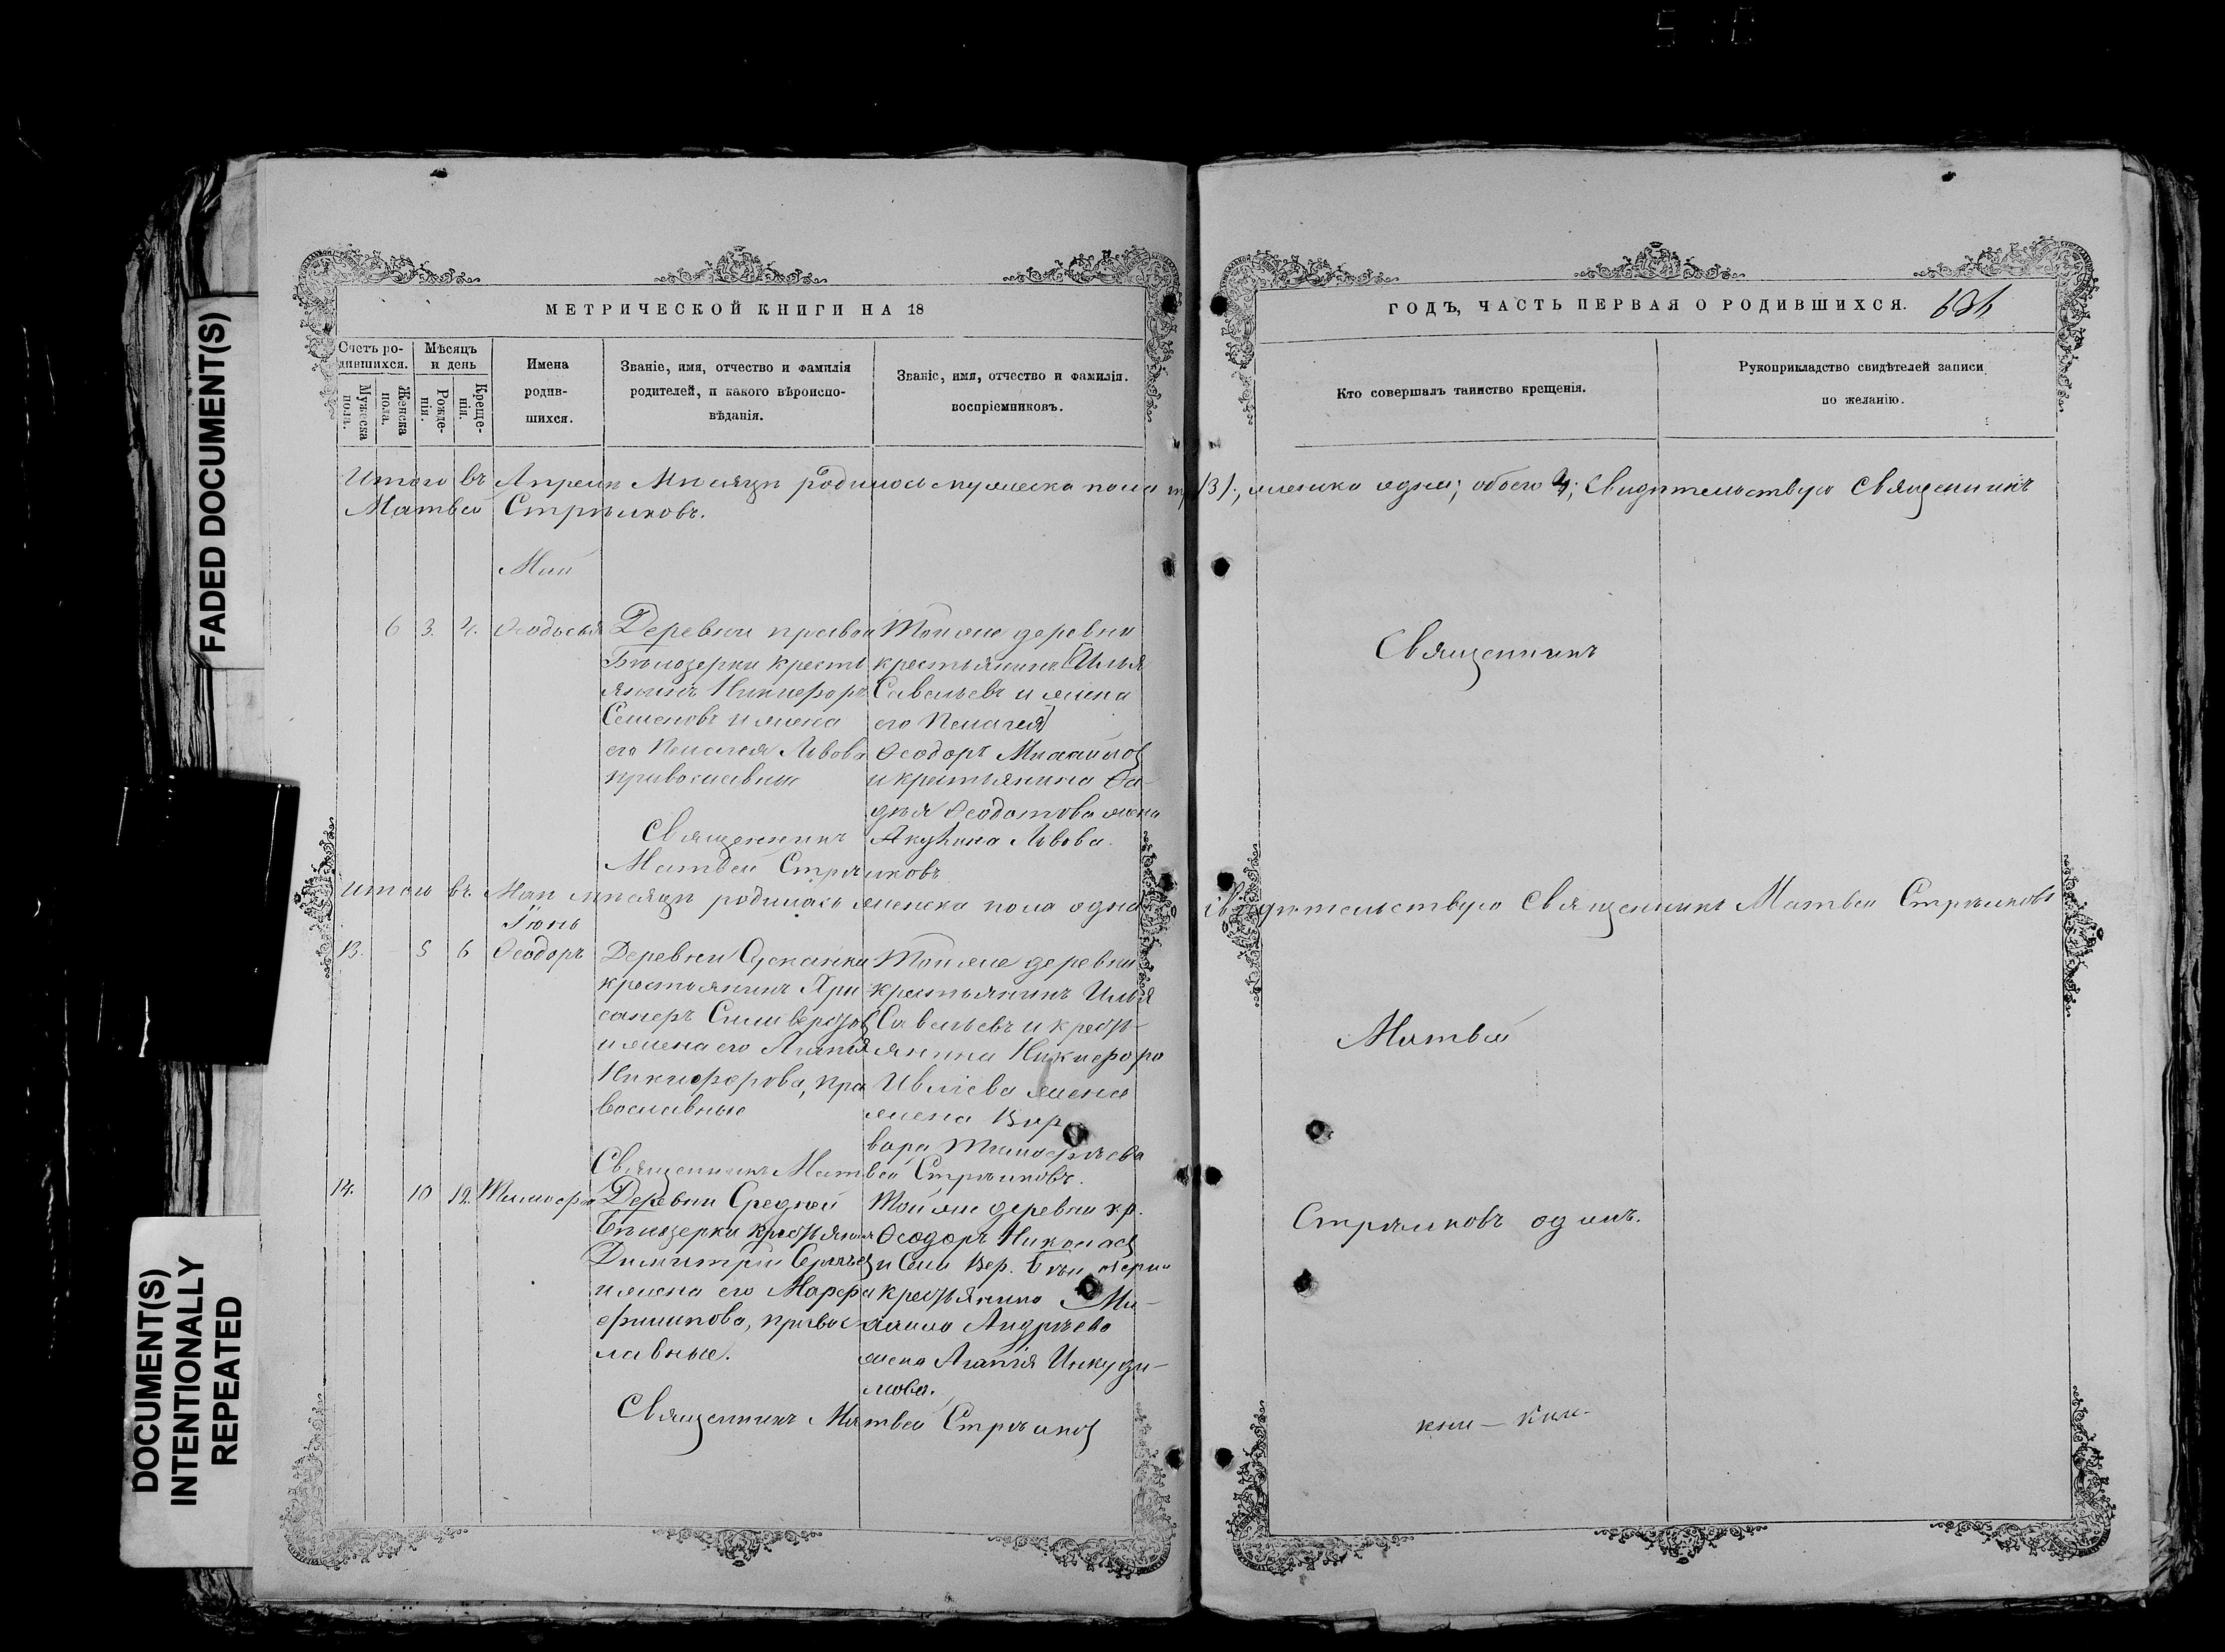 FADED DOCUMENT(S)
DOCUMENT(S)
INTENTIONALLY
REPEATED
МЕТРИЧЕСКОЙ КНИГИ НА 18
ГОДЪ, ЧАСТЬ ПЕРВАЯ О РОДИВШИХСЯ.
Счетъ ро-
дившихся.
Мужеска
пола.
Женска
пола.
Мѣсяцъ
и день
Рожде-
нія.
Креще-
нія.
Имена
родив-
шихся.
Званіе, имя, отчество и фамилія
родителей, и какого вѣроиспо-
вѣданія.
Званіе, имя, отчество и фамилія.
воспріемниковъ.
Кто совершалъ таинство крещенія.
Рукоприкладство свидѣтелей записи
по желанію.
Итого въ Апрелѣ Мѣсяцѣ родилось мужеска пола (3), женска одна; обоего 4; Свидѣтельствую Священникъ
Матвей Стрѣлковъ.
Май
6 3. 4. Ѳеодосья
Деревни правой
Бѣлозерки кресть
янинъ Никифоръ
Семеновъ и жена
его Пелагея Львова
православные
Тойже деревни
крестьянинъ [Илья
Савельевъ и жена
его Пелагея]
Ѳеодоръ Михайлов
и крестьянина Ѳа-
дѣя Ѳеодотова жена
Акулина Львова.
Священникъ
Матвей Стрѣлковъ
Священникъ
Итого въ Маѣ мѣсяцѣ родилась женска пола одна Свидѣтельствую Священникъ Матвей Стрѣлковъ
Іюнь
13. 5 6 Ѳеодоръ
Деревни Осканки
крестьянинъ Хри
санфъ Силиверстов
и жена его Агапія
Никифорова, пра
вославные
Тойже деревни
крестьянинъ Илья
Савельевъ и кресть-
янина Никифора
Ивлiева жена
жена Вар
вара Тимофѣева
Священникъ Матвей Стрѣлковъ.
Матвей
14. 10 12. Тимофей
Деревни Средней
Бѣлозерки крестьянинъ
Димитрій Сергѣев
и жена его Марфа
Филипова, правос
лавные.
Тойже деревни кр.
Ѳеодоръ Николаев
и Села Вер. Бѣлозерки
крестьянина Ми-
хаила Андрѣева
жена Агапія Инкуди-
нова.
Священникъ Матвей Стрѣлков
Стрѣлковъ одинъ.